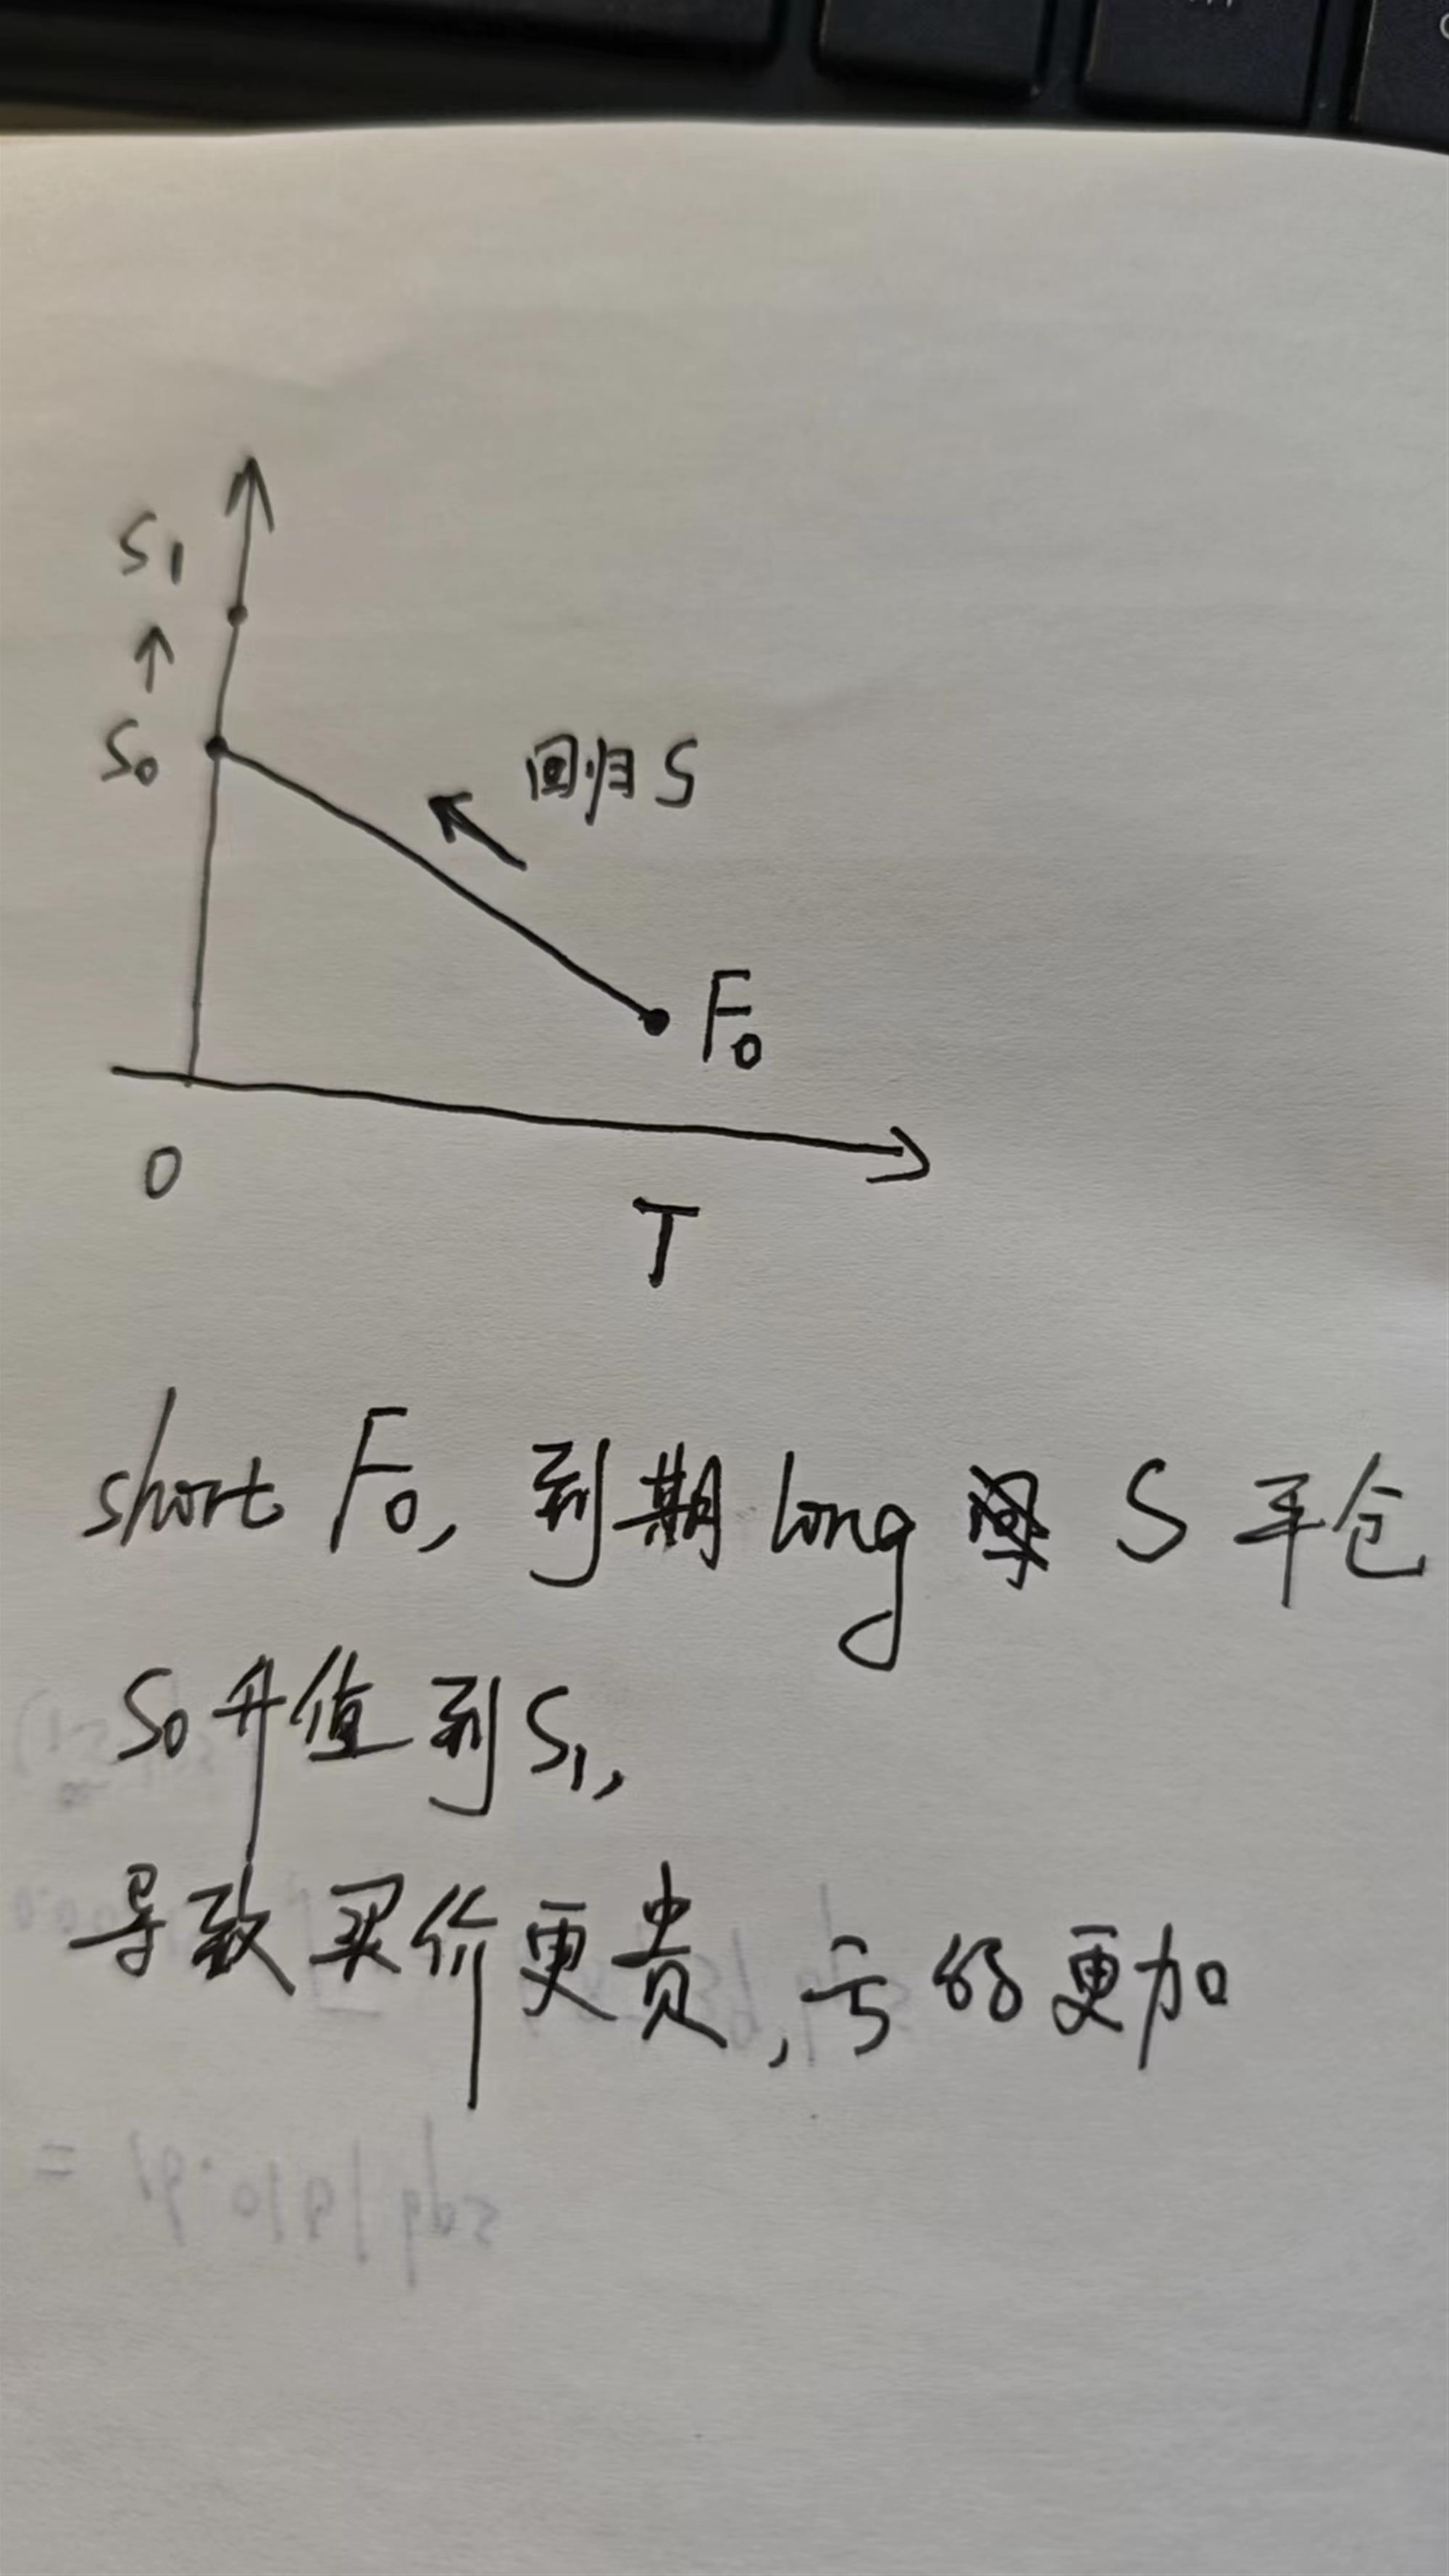 S1
↑
S0
回归 S
F0
0
T
short F0, 到期 long S 平仓
S0 升值到 S1,
导致买价更贵, 亏的更加